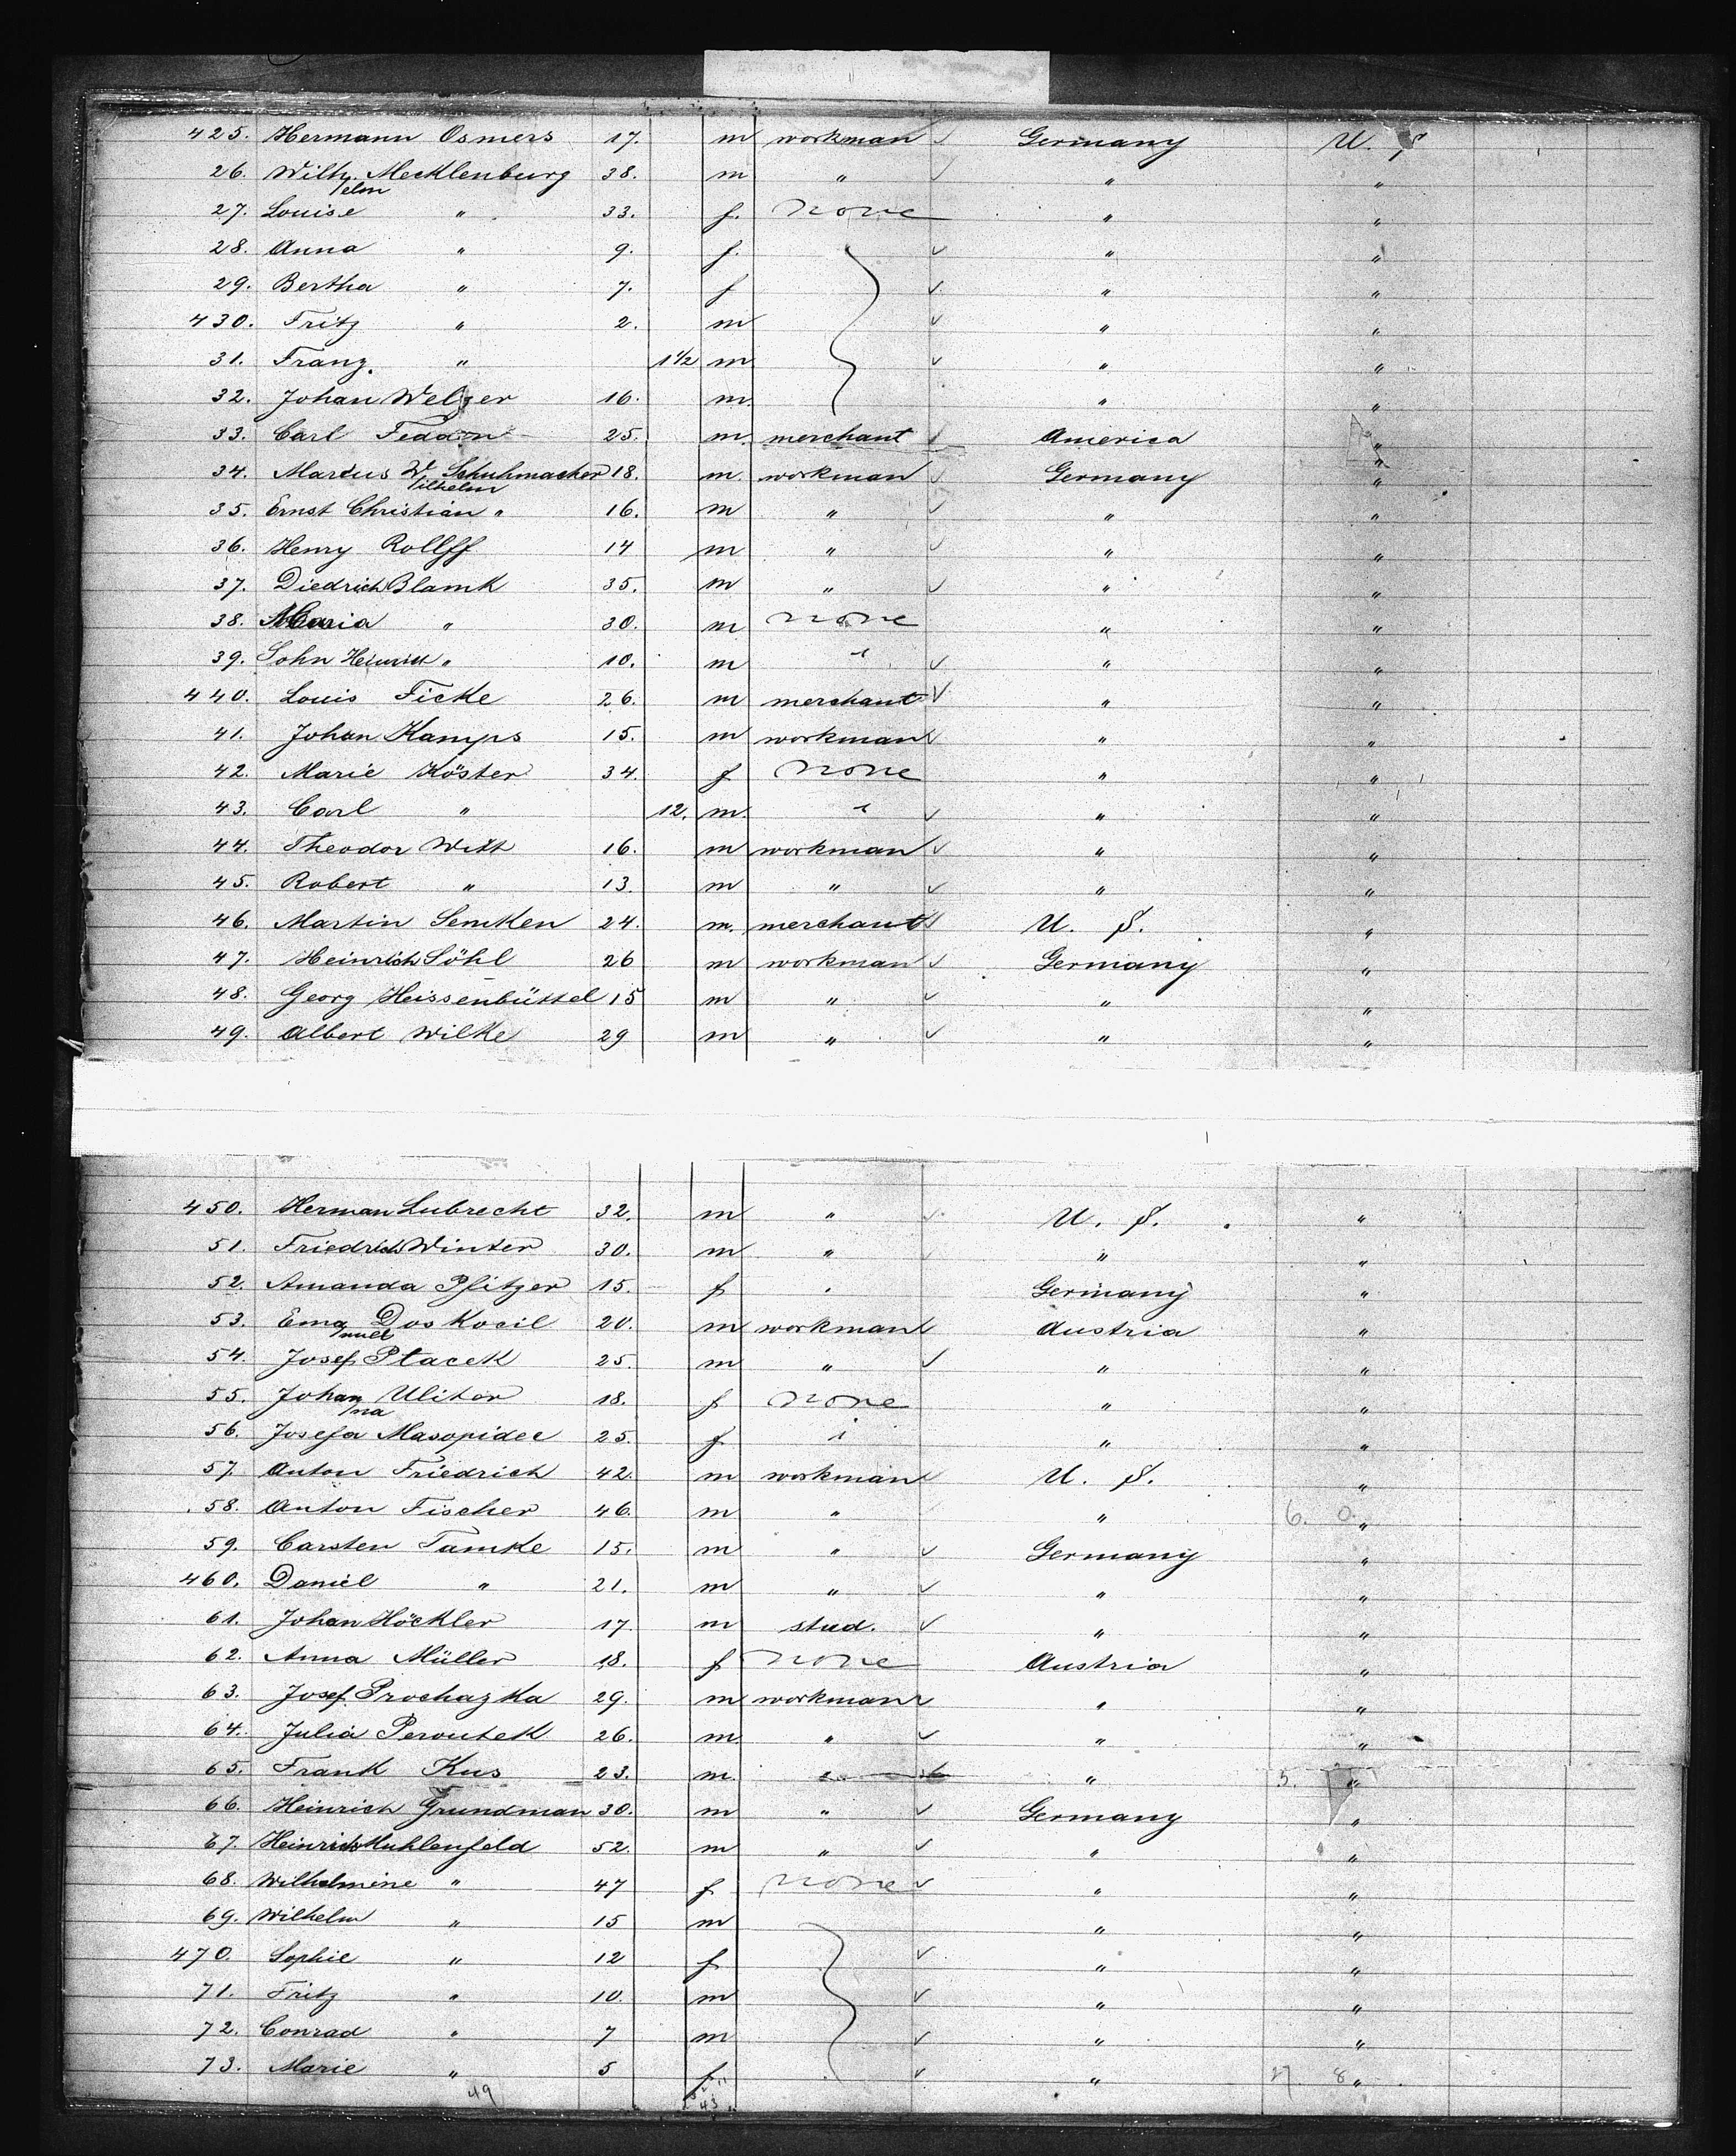 425. Hermann Osmers 17. m workman Germany U. S
26. Wilh. Mecklenburg 38. m " " "
elm
27. Louise " 33. f. none " "
28. Anna " 9. f. " "
29. Bertha " 7. f " "
430. Fritz " 2. m " "
31. Franz. " 1½ m " "
32. Johan Welzer 16. m. " "
33. Carl Feddon 25. m. merchant America "
34. Marcus W. Schuhmacher 18. m. workman Germany "
ilhelm
35. Ernst Christian " 16. m " " "
36. Henry Rollff 14 m " " "
37. Diedrich Blamk 35. m " " "
38. Maria " 30. m none " "
39. John Heinrich " 10. m " " "
440. Louis Ficke 26. m merchant " "
41. Johan Kamps 15. m workman " "
42. Marie Köster 34. f none " "
43. Carl " 12. m. " " "
44. Theodor Witt 16. m workman " "
45. Robert " 13. m " " "
46. Martin Semken 24. m. merchant U. S. "
47. Heinrich Söhl 26 m workman Germany "
48. Georg Heissenbüttel 15 m " " "
49. Albert Wilke 29 m " " "
450. Herman Lubrecht 32. m " U. S. "
51. Friedrich Winter 30. m " " "
52. Amanda Pfitzer 15. f Germany "
53. Ema Doskocil 20. m workman Austria "
nuel
54. Josef Ptacek 25. m " " "
55. Johan Ulitor 18. f none " "
na
56. Josefa Masopidee 25. f " " "
57. Anton Friedrich 42. m workman U. S. "
58. Anton Fischer 46. m " " 6. 0. "
59. Carsten Tamke 15. m " Germany "
460. Daniel " 21. m " " "
61. Johan Höckler 17. m stud. " "
62. Anna Müller 18. f none Austria "
63. Josef Prochazka 29. m workman " "
64. Julia Peroutek 26. m. " " "
65. Frank Kus 23. m. " " 5. "
66. Heinrich Grundman 30. m " Germany "
67. Heinrich Muhlenfeld 52. m " " "
68. Wilhelmine " 47 f none " "
69. Wilhelm " 15 m " "
470. Sophie " 12 f " "
71. Fritz " 10. m " "
72. Conrad " 7 m " "
73. Marie " 5 f " 8 "
49 43